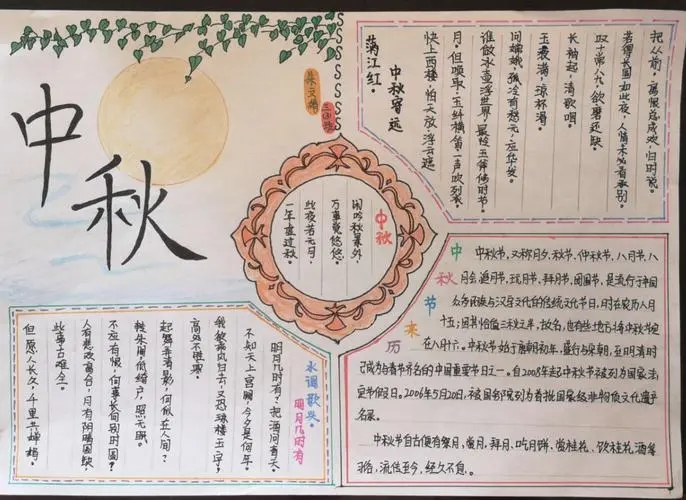 中秋
满江红·
中秋寄远
快上西楼，怕天放浮云遮
月。但唤取，玉纤横笛，一声吹裂。
谁做冰壶浮世界，最怜玉斧修时节。
问嫦娥，孤冷有愁无，应华发。
玉液满，琼杯滑。
长袖起，清歌咽。
叹十常八九，欲磨还缺。
若得长圆如此夜，人情未必看承别。
把从前，离恨总成欢，归时说。
中秋
闲吟秋景外，
万事觉悠悠。
此夜若无月，
一年虚过秋。
水调歌头·
明月几时有
明月几时有？把酒问青天。
不知天上宫阙，今夕是何年。
我欲乘风归去，又恐琼楼玉宇，
高处不胜寒。
起舞弄清影，何似在人间？
转朱阁，低绮户，照无眠。
不应有恨，何事长向别时圆？
人有悲欢离合，月有阴晴圆缺，
此事古难全。
但愿人长久，千里共婵娟。
中秋节来历
中秋节，又称月夕、秋节、仲秋节、八月节、八
月会、追月节、玩月节、拜月节、团圆节，是流行于中国
众多民族与汉字文化的传统文化节日，时在农历八月
十五；因其恰值三秋之半，故名，也有些地方将中秋节定
在八月十六。中秋节始于唐朝初年，盛行与宋朝，至明清时
已成为与春节齐名的中国重要节日之一。自2008年起中秋节被列为国家法
定节假日。2006年5月20日，被国务院列为首批国家级非物质文化遗产
名录。
中秋节自古便有祭月、赏月、拜月、吃月饼、赏桂花、饮桂花酒等
习俗，流传至今，经久不息。